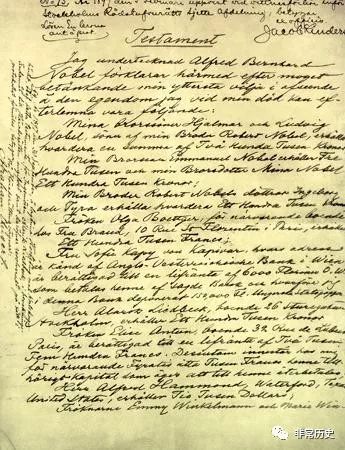 No 73. 1897 den 5 Februari uppvist vid vittnesförhör inför
Stockholms Rådstufvurätts sjette Afdelning; betygar
Testament
Jag undertecknad Alfred Bernhard
Nobel förklarar härmed efter moget
betänkande min yttersta vilja i afseende
å den egendom jag vid min död kan ef-
terlemna vara följande:
Mina Brorsöner Hjalmar och Ludvig
Nobel, söner af min Broder Robert Nobel, erhålla
hvardera en Summa af Två Hundra Tusen Kronor
Min Brorson Emmanuel Nobel erhåller Tre
Hundra Tusen och min Brorsdotter Mina Nobel
Ett Hundra Tusen Kronor;
Min Broder Robert Nobels döttrar Ingeborg
och Tyra erhålla hvardera Ett Hundra Tusen Kronor
Fröken Olga Boettger, för närvarande boende
hos Fru Brand, 10 Rue St Florentin i Paris, erhåller
Ett Hundra Tusen Francs;
Fru Sofie Kapy von Kapivar, hvars adress
är känd af Anglo-Oesterreichische Bank i Wien
är berättigad till en lifränta af 6000 Florins Ö.W.
som betalas henne af sagde Bank och hvarför jag
i denna Bank deponerat 150,000 Fl. i Ungerska Statspapper
Herr Alarik Liedbeck, boende 26 Sturegatan,
Stockholm, erhåller Ett Hundra Tusen Kronor
Fröken Elise Antun, boende 32 Rue de Lubeck,
Paris, är berättigad till en lifränta af Två Tusen
Fem Hundra Francs. Dessutom innestår hos mig
för närvarande Fyratio åtta Tusen Francs henne till-
hörigt kapital som äger att till henne återbetalas
Herr Alfred Hammond, Waterford, Texas
United States, erhåller Tio Tusen Dollars;
Fröknarna Emmy Winkelmann och Marie Win-
非常历史